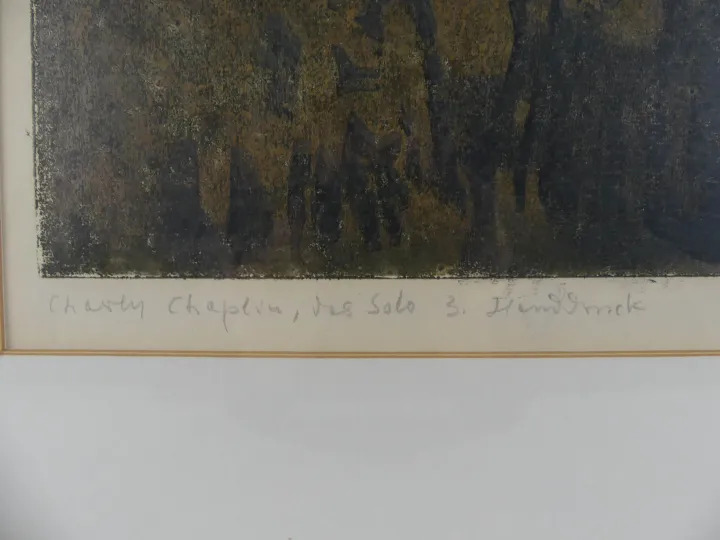 Charly Chaplin, das Solo 3. Handdruck